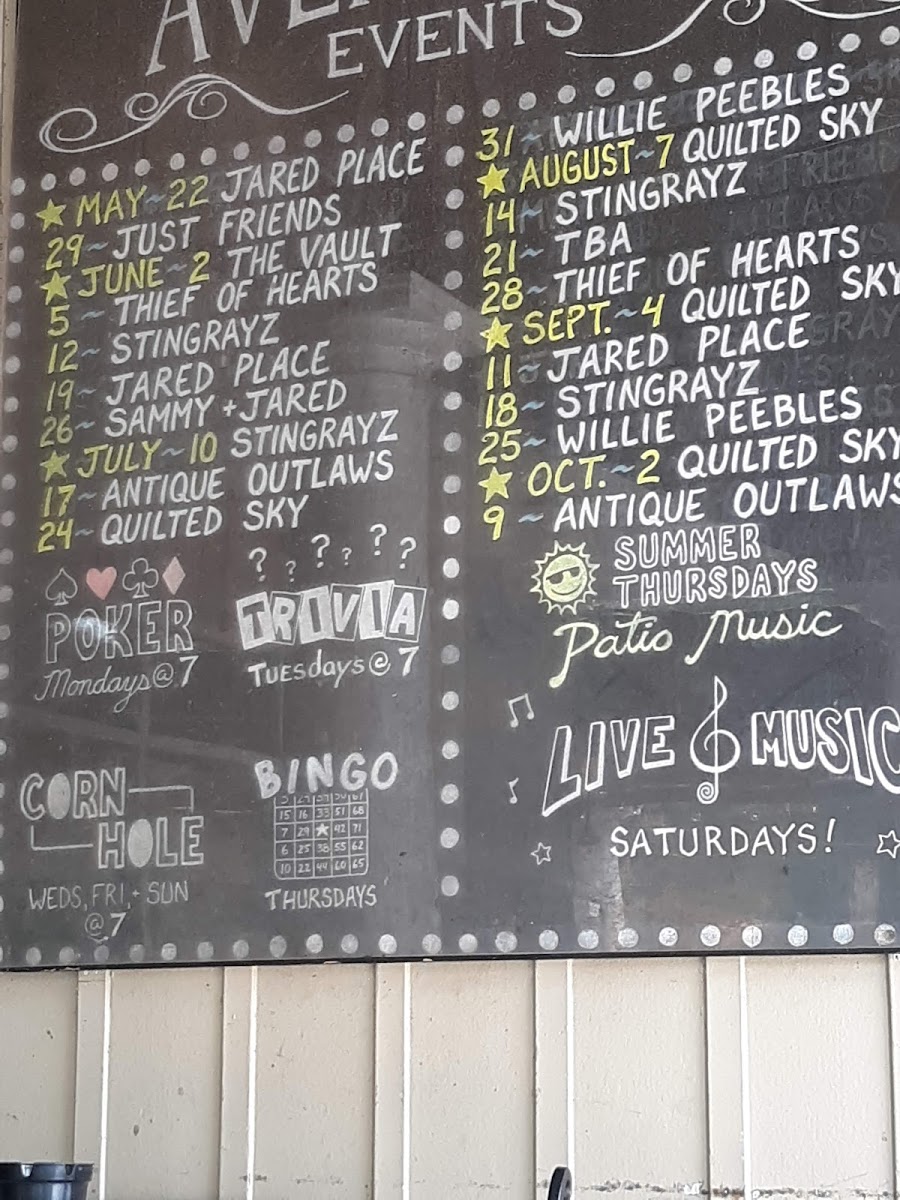 EVENTS
★ MAY ~ 22 JARED PLACE
29 ~ JUST FRIENDS
★ JUNE ~ 2 THE VAULT
5 ~ THIEF OF HEARTS
12 ~ STINGRAYZ
19 ~ JARED PLACE
26 ~ SAMMY + JARED
★ JULY ~ 10 STINGRAYZ
17 ~ ANTIQUE OUTLAWS
24 ~ QUILTED SKY
31 ~ WILLIE PEEBLES
★ AUGUST ~ 7 QUILTED SKY
14 ~ STINGRAYZ
21 ~ TBA
28 ~ THIEF OF HEARTS
★ SEPT. ~ 4 QUILTED SKY
11 ~ JARED PLACE
18 ~ STINGRAYZ
25 ~ WILLIE PEEBLES
★ OCT. ~ 2 QUILTED SKY
9 ~ ANTIQUE OUTLAWS
POKER
Mondays @ 7
? ? ? ? ? ?
TRIVIA
Tuesdays @ 7
CORN
HOLE
WEDS, FRI, + SUN
@ 7
BINGO
15 16 33 51 68
7 29 ★ 42 71
6 25 38 55 62
10 22 44 60 65
THURSDAYS
SUMMER
THURSDAYS
Patio Music
LIVE MUSIC
SATURDAYS!